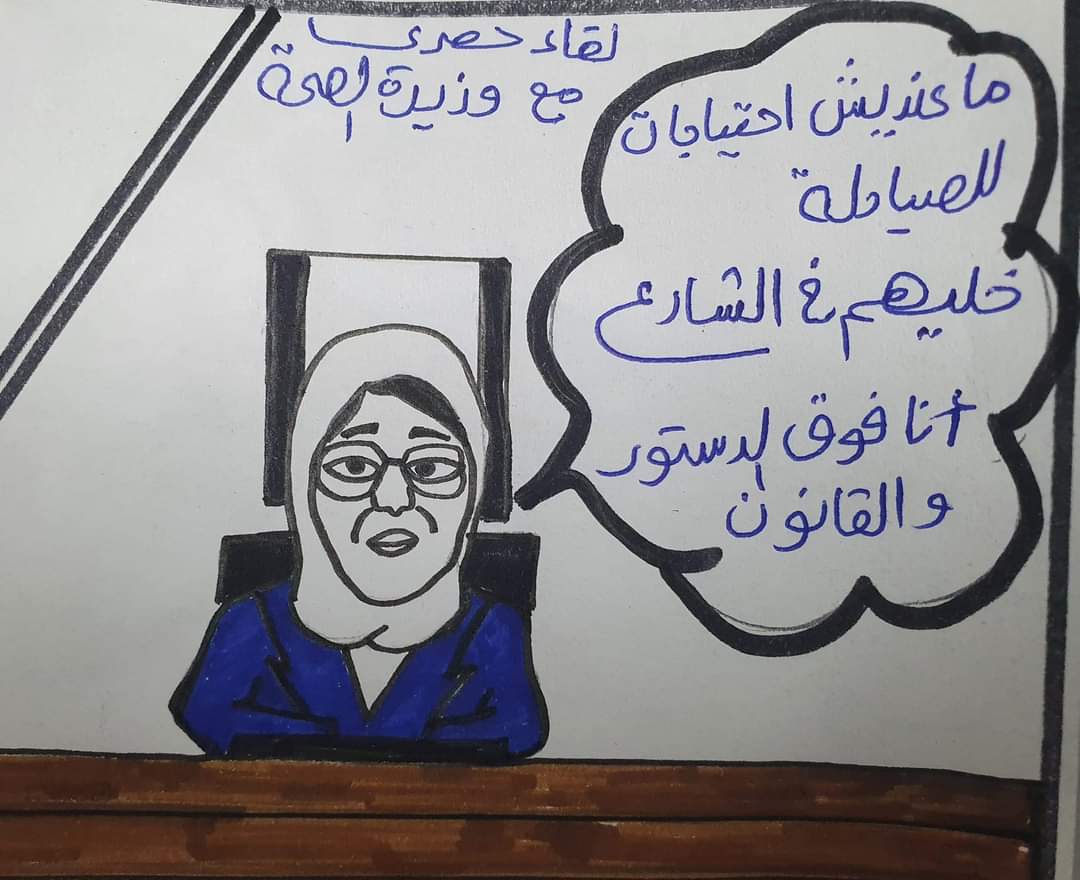 لقاء حصري
مع وزيرة الصحة
ما عنديش احتياجات
للصيادلة
خليهم في الشارع
أنا فوق الدستور
والقانون